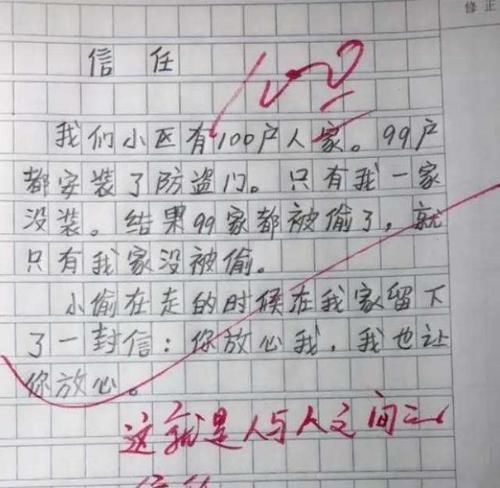 修正
信任
100
我们小区有100户人家。99户
都安装了防盗门。只有我一家
没装。结果99家都被偷了，就
只有我家没被偷。
小偷在走的时候在我家留下
了一封信：你放心我，我也让
你放心。
这就是人与人之间